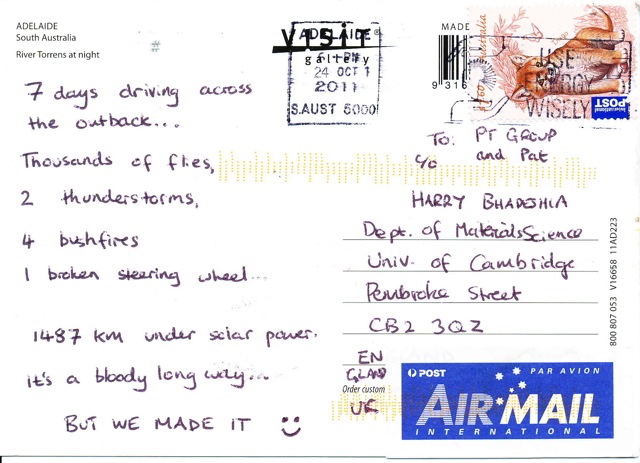 ADELAIDE
South Australia
River Torrens at night
7 days driving across
the outback...
Thousands of flies,
2 thunderstorms,
4 bushfires
1 broken steering wheel...
1487 km under solar power.
it's a bloody long way...
BUT WE MADE IT
VISIT
ADELAIDE
gallery
24 OCT 1
2011
S.AUST 5000
MADE
9 316
Australia
$1.60
USE
ENERGY
WISELY
International
POST
To: PT GROUP
and Pat
c/o
HARRY BHADESHIA
Dept. of Materials Science
Univ. of Cambridge
Pembroke Street
CB2 3QZ
EN
GLAND
Order custom
UK
800 807 053 V16658 11AD223
POST
PAR AVION
AIR MAIL
INTERNATIONAL